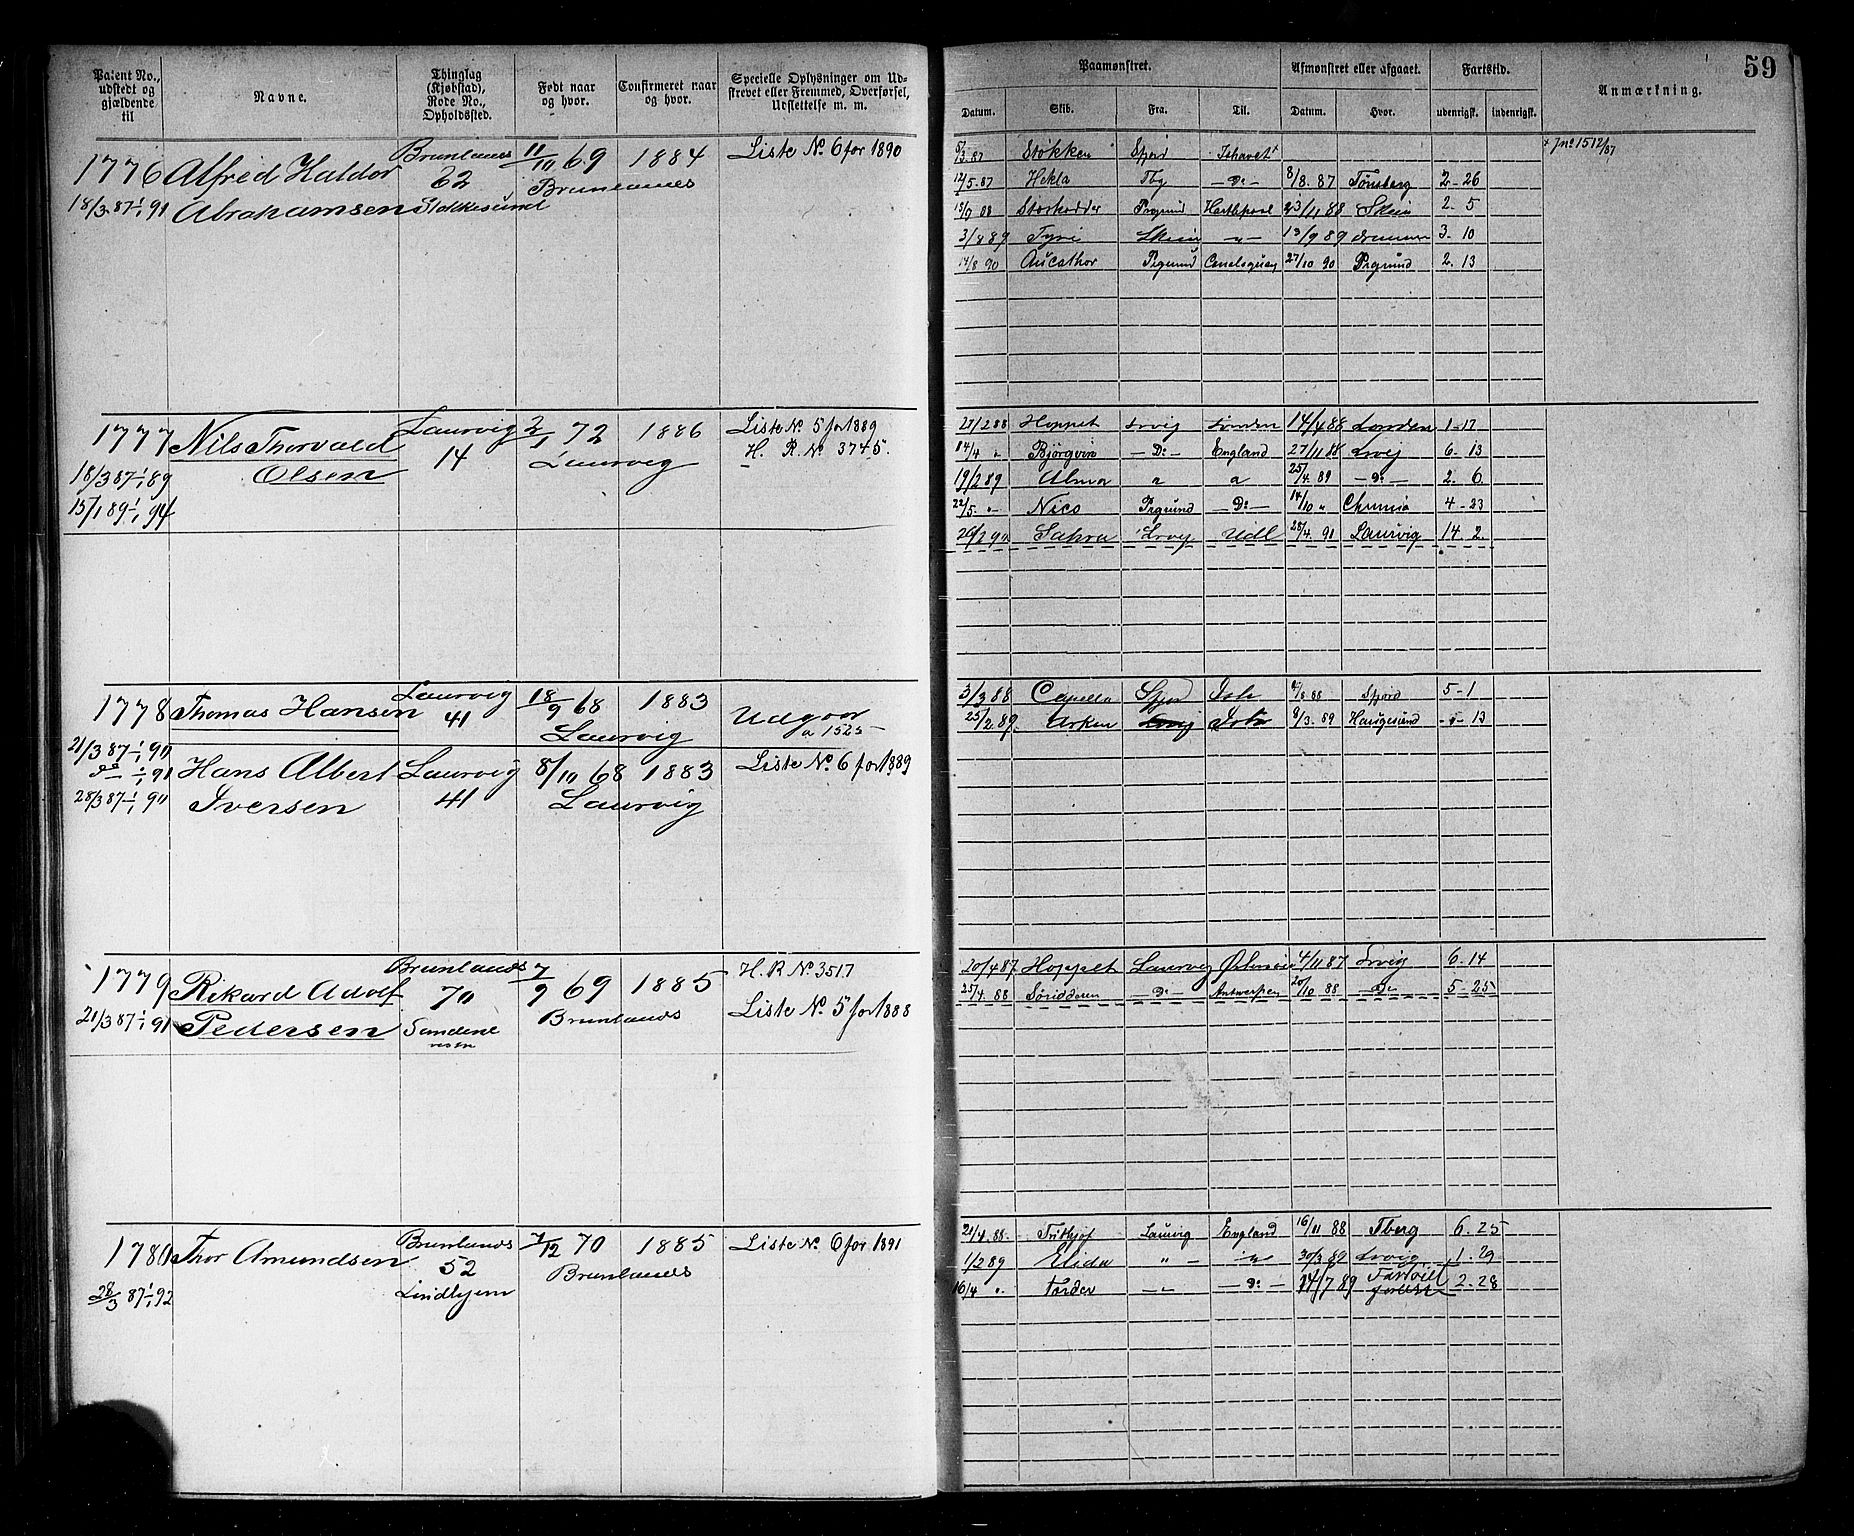 Patent No., udstedt og gjældende til
Navne.
Thinglag (Kjøbstad), Rode No., Opholdssted.
Født naar og hvor.
Confirmeret naar og hvor.
Specielle Oplysninger om Udstrevet eller Fremmed, Overførsel, Udslettelse m. m.
Paamønstret.
Afmønstret eller afgaaet.
Fartstid.
Anmærkning.
59
Datum. Skib. Fra. Til. Datum. Hvor. udenrigsk. indenrigsk.
1776 Alfred Haldor Brunlanes 11/10 69 1884 Liste No. 6 for 1890
62 Brunlanes
18/3 87 1/1 91 Abrahamsen
3.87 Stokken Sfjord Ishavet
+ Jno 1512/87
12/5.87 Hekla Tbg - Do - 8/8.87 Tønsberg 2-26
Prgrund Hartlepool 88 Skien 2. 5
3/8 89 Tyri Skien -"- 13/9 89 3. 10
14/8 90 Prgrund 27/10 90 Prgrund 2. 13
1777 Nils Thorvald Laurvig 2/1 72 1886 Liste No. 5 for 1889
14 Laurvig H. R. No 3745.
18/3 87 1/1 89 Olsen
15/1 89 1/1 94
27/2 88 Hoppet Lrvig London 14/4 88 London 1-17
14/4 " Bjørgvin - Do - England 27/11 88 Lrvig 6. 13
19/2 89 Alma " " 25/4. 89 - Do - 2. 6
22/5. " Nico Prgrund - Do - 14/10 " Chrnia 4-23
Lrvig Udl 28/4. 91 Laurvig 14. 2.
1778 Thomas Hansen Laurvig 18/9 68 1883
41 Laurvig Udgaar
a 1525
21/3 87 1/1 90
3/3 88 Capella Sfjord Ish 88 Sfjord 5-1
25/2.89. Arken Lrvig Ish 9/3. 89 Haugesund - " - 13
1/1 91 Hans Albert Laurvig 8/10 68 1883 Liste No. 6 for 1889
28/3 87 1/1 90 Iversen 41 Laurvig
1779 Rikard Adolf Brunlanes 7/9 69 1885 H. R No 3517
70 Brunlanes Liste No. 5 for 1888
21/3 87 1/1 91 Pedersen
20/4 87 Hoppet Laurvig 4/11 87 Lrvig 6. 14
25/4. 88 Søridderen - Do - Antwerpen 20/10 88 - Do 5-25
1780 Thor Amundsen Brunlanes 7/12 70 1885 Liste No. 6 for 1891
52 Brunlanes
28/3 87 1/1 92 Lindhjem
21/4. 88. Frithjof Laurvig England 16/11 88 Tberg 6. 25
1/2 89 Elida " - " 30/3 89 Lrvig 1. 29
16/4 " - " - - Do - 14/7 89 2. 28